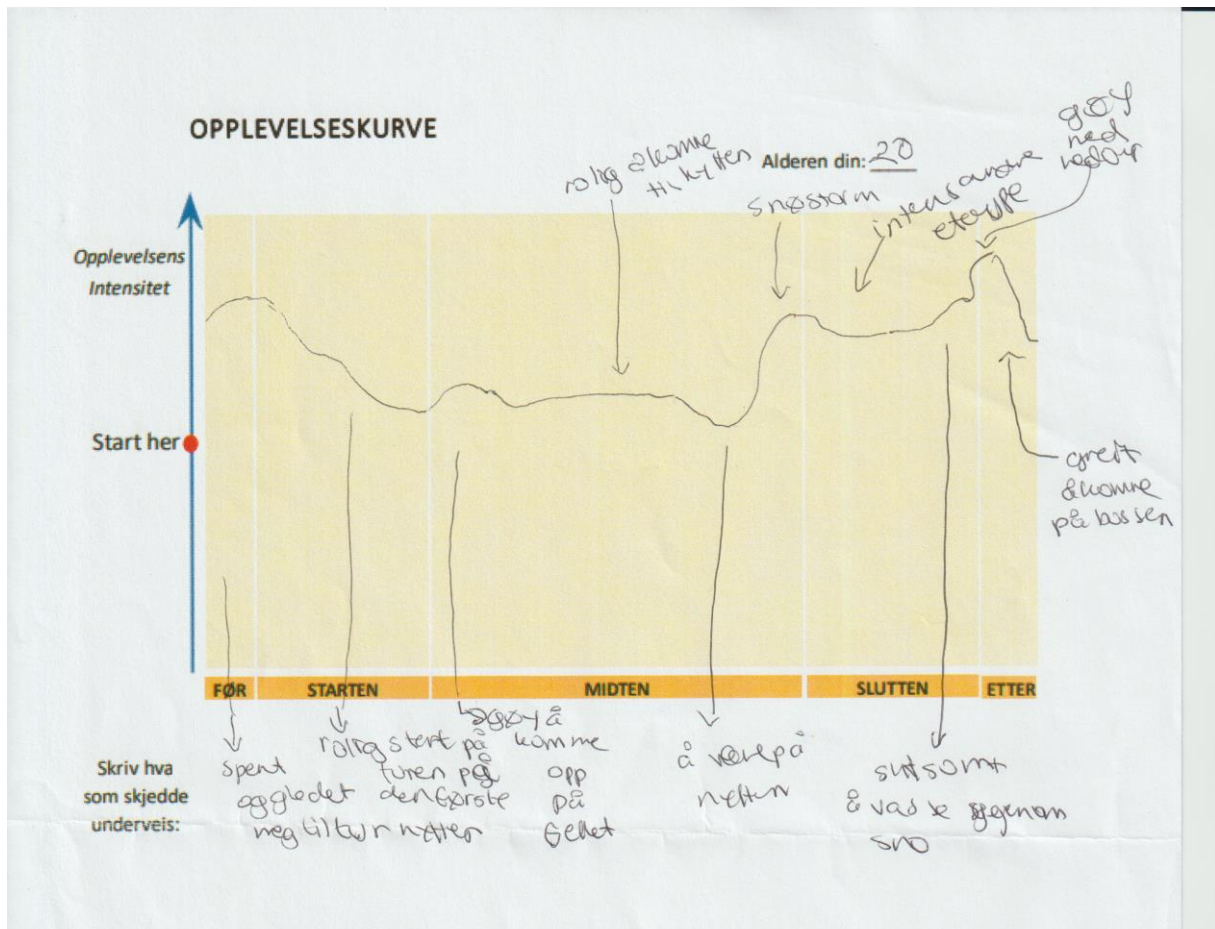 OPPLEVELSESKURVE
Alderen din: 20
gøy
ned
nedover
rolig å komme
til hytten
snøstorm
intens andre
etappe
Opplevelsens
Intensitet
Start her
greit
å komme
på bussen
FØR STARTEN MIDTEN SLUTTEN ETTER
Skriv hva
som skjedde
underveis:
spent
og gledet
meg til tur
rolig start på
turen på
den første
hytten
gøy å
komme
opp
på
fjellet
å være på
hytten
slitsomt
å vasse gjenom
snø